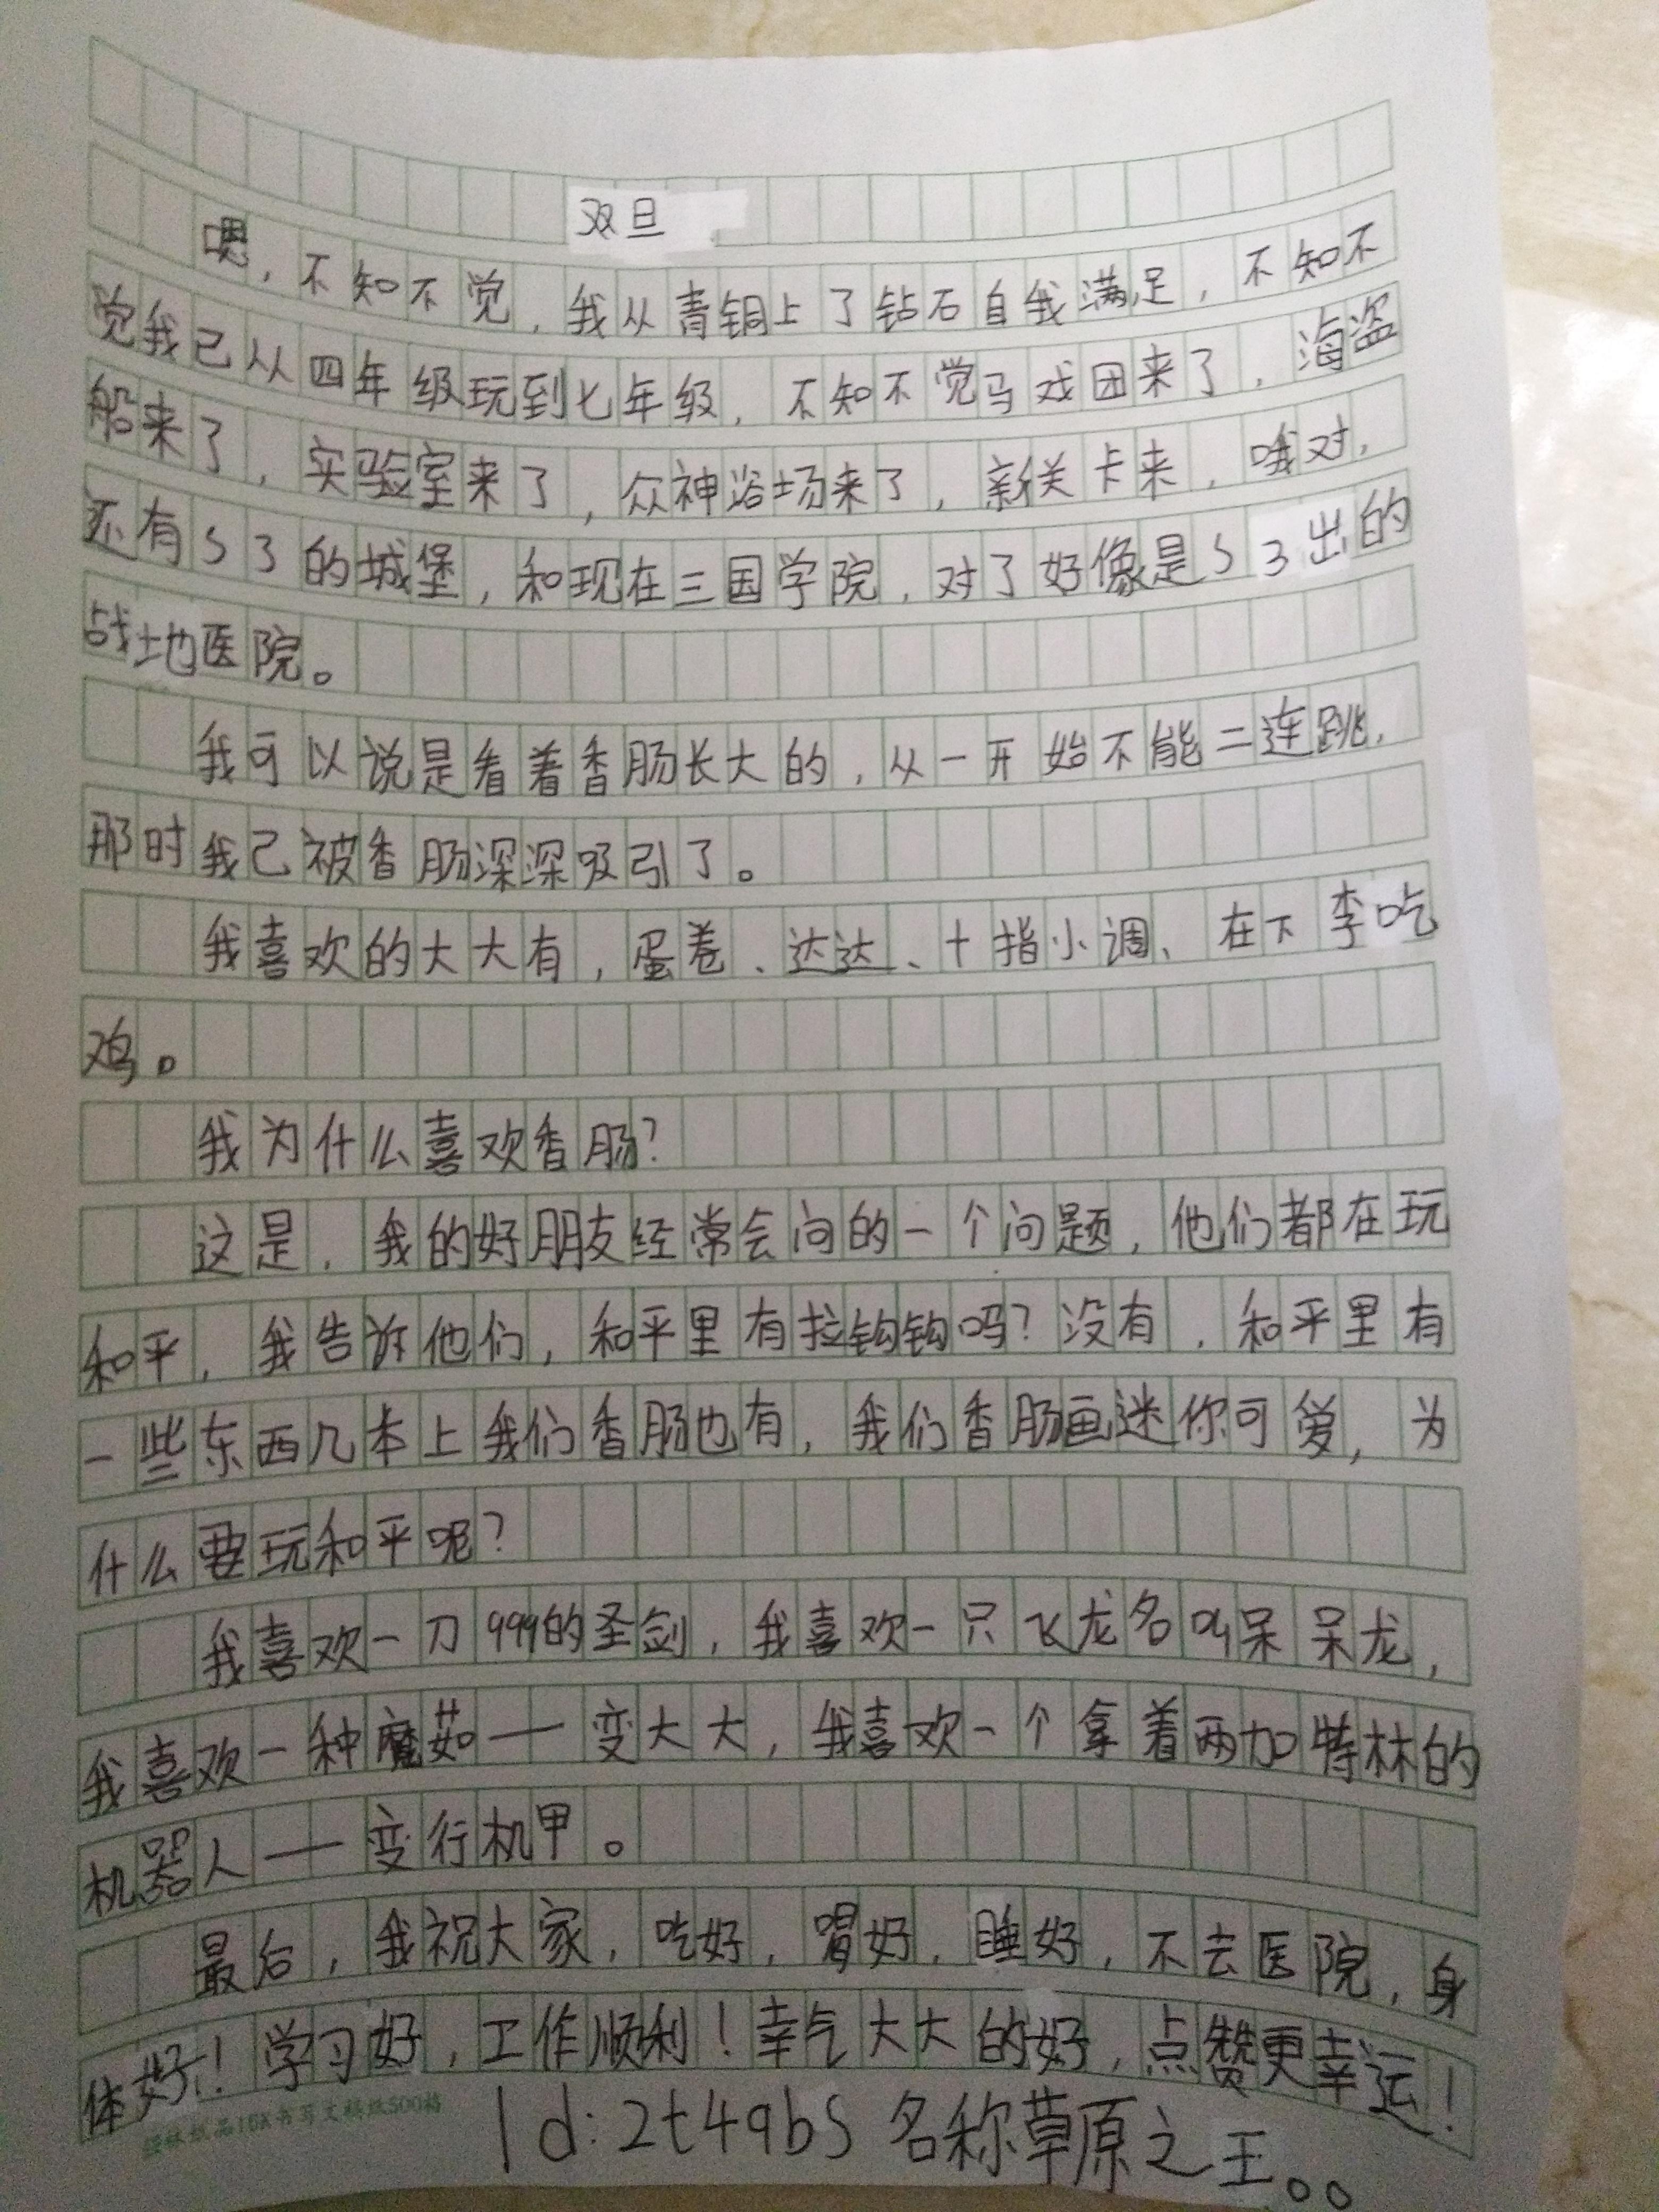 双旦
嗯，不知不觉，我从青铜上了钻石自我满足，不知不
觉我已从四年级玩到七年级，不知不觉马戏团来了，海盗
船来了，实验室来了，众神浴场来了，新关卡来，哦对，
还有S3的城堡，和现在三国学院，对了好像是S3出的
战地医院。
我可以说是看着香肠长大的，从一开始不能二连跳，
那时我已被香肠深深吸引了。
我喜欢的大大有，蛋卷、达达、十指小调、在下李吃
鸡。
我为什么喜欢香肠？
这是，我的好朋友经常会问的一个问题，他们都在玩
和平，我告诉他们，和平里有拉钩钩吗？没有，和平里有
一些东西几本上我们香肠也有，我们香肠画迷你可爱，为
什么要玩和平呢？
我喜欢一刀999的圣剑，我喜欢一只飞龙名叫呆呆龙，
我喜欢一种魔茹——变大大，我喜欢一个拿着两加特林的
机器人——变行机甲。
最后，我祝大家，吃好，喝好，睡好，不去医院，身
体好！学习好，工作顺利！幸气大大的好，点赞更幸运！
Id:2t4qbS 名称草原之王。。